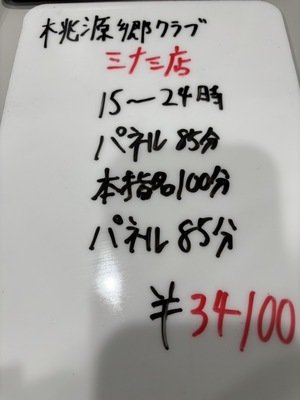 桃源郷クラブ
ミナミ店
15〜24時
パネル85分
本指名100分
パネル85分
¥34100